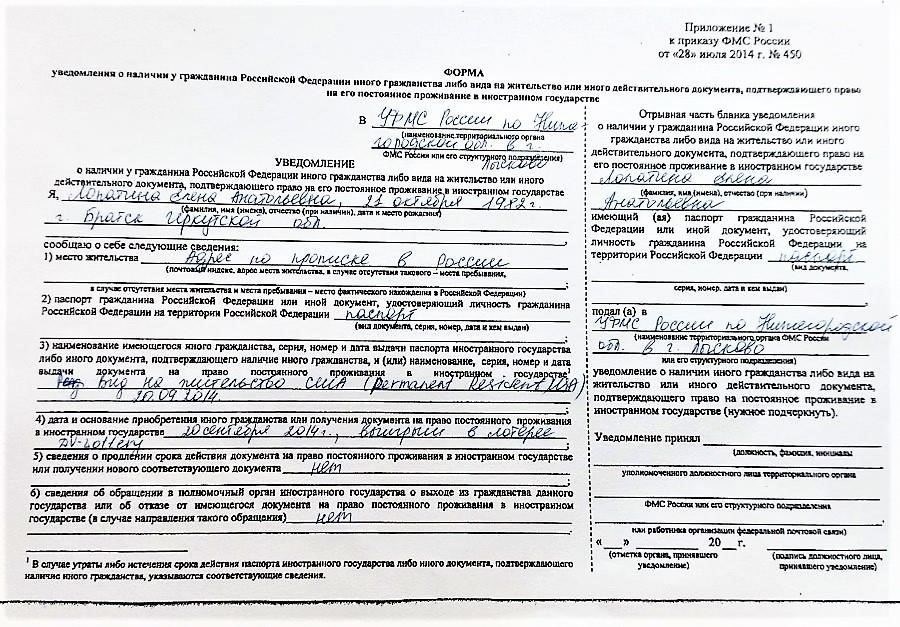 Приложение № 1
к приказу ФМС России
от «28» июля 2014 г. № 450
ФОРМА
уведомления о наличии у гражданина Российской Федерации иного гражданства либо вида на жительство или иного действительного документа, подтверждающего право
на его постоянное проживание в иностранном государстве
в УФМС России по Ниже-
(наименование территориального органа
городской обл. в г.
ФМС России или его структурного подразделения)
Лысково
УВЕДОМЛЕНИЕ
о наличии у гражданина Российской Федерации иного гражданства либо вида на жительство или иного
действительного документа, подтверждающего право на его постоянное проживание в иностранном государстве
Я, Лопатина Елена Анатольевна, 21 октября 1982г.
(фамилия, имя (имена), отчество (при наличии), дата и место рождения)
г. Братск Иркутской обл.
сообщаю о себе следующие сведения:
1) место жительства Адрес по прописке в России
(почтовый индекс, адрес места жительства, в случае отсутствия такового – места пребывания,
в случае отсутствия места жительства и места пребывания – место фактического нахождения в Российской Федерации)
2) паспорт гражданина Российской Федерации или иной документ, удостоверяющий личность гражданина
Российской Федерации на территории Российской Федерации паспорт
(вид документа, серия, номер, дата и кем выдан)
3) наименование имеющегося иного гражданства, серия, номер и дата выдачи паспорта иностранного государства
либо иного документа, подтверждающего наличие иного гражданства, и (или) наименование, серия, номер и дата
выдачи документа на право постоянного проживания в иностранном государстве¹
Вид на жительство США (Permanent Resident, USA)
20.09.2014.
4) дата и основание приобретения иного гражданства или получения документа на право постоянного проживания
в иностранном государстве 20 сентября 2014г., выигрыш в лотерее
DV-Lottery
5) сведения о продлении срока действия документа на право постоянного проживания в иностранном государстве
или получении нового соответствующего документа нет
6) сведения об обращении в полномочный орган иностранного государства о выходе из гражданства данного
государства или об отказе от имеющегося документа на право постоянного проживания в иностранном
государстве (в случае направления такого обращения) нет
¹ В случае утраты либо истечения срока действия паспорта иностранного государства либо иного документа, подтверждающего
наличие иного гражданства, указываются соответствующие сведения.
Отрывная часть бланка уведомления
о наличии у гражданина Российской Федерации иного
гражданства либо вида на жительство или иного
действительного документа, подтверждающего право на
его постоянное проживание в иностранном государстве
Лопатина Елена
(фамилия, имя (имена), отчество (при наличии)
Анатольевна
имеющий (ая) паспорт гражданина Российской
Федерации или иной документ, удостоверяющий
личность гражданина Российской Федерации на
территории Российской Федерации паспорт
(вид документа,
серия, номер, дата и кем выдан)
подал (а) в
УФМС России по Нижегородской
(наименование территориального органа ФМС России
обл. в г. Лысково
или его структурного подразделения)
уведомление о наличии иного гражданства либо вида на
жительство или иного действительного документа,
подтверждающего право на постоянное проживание в
иностранном государстве (нужное подчеркнуть).
Уведомление принял
(должность, фамилия, инициалы
уполномоченного должностного лица территориального органа
ФМС России или его структурного подразделения
или работника организации федеральной почтовой связи)
« » 20 г.
(отметка органа, принявшего
уведомление)
(подпись должностного лица,
принявшего уведомление)